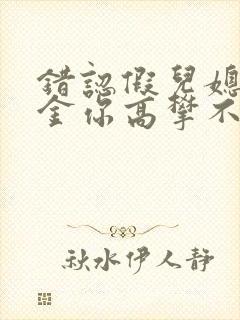 錯認假兒媳
金你高攀不
秋水伊人靜